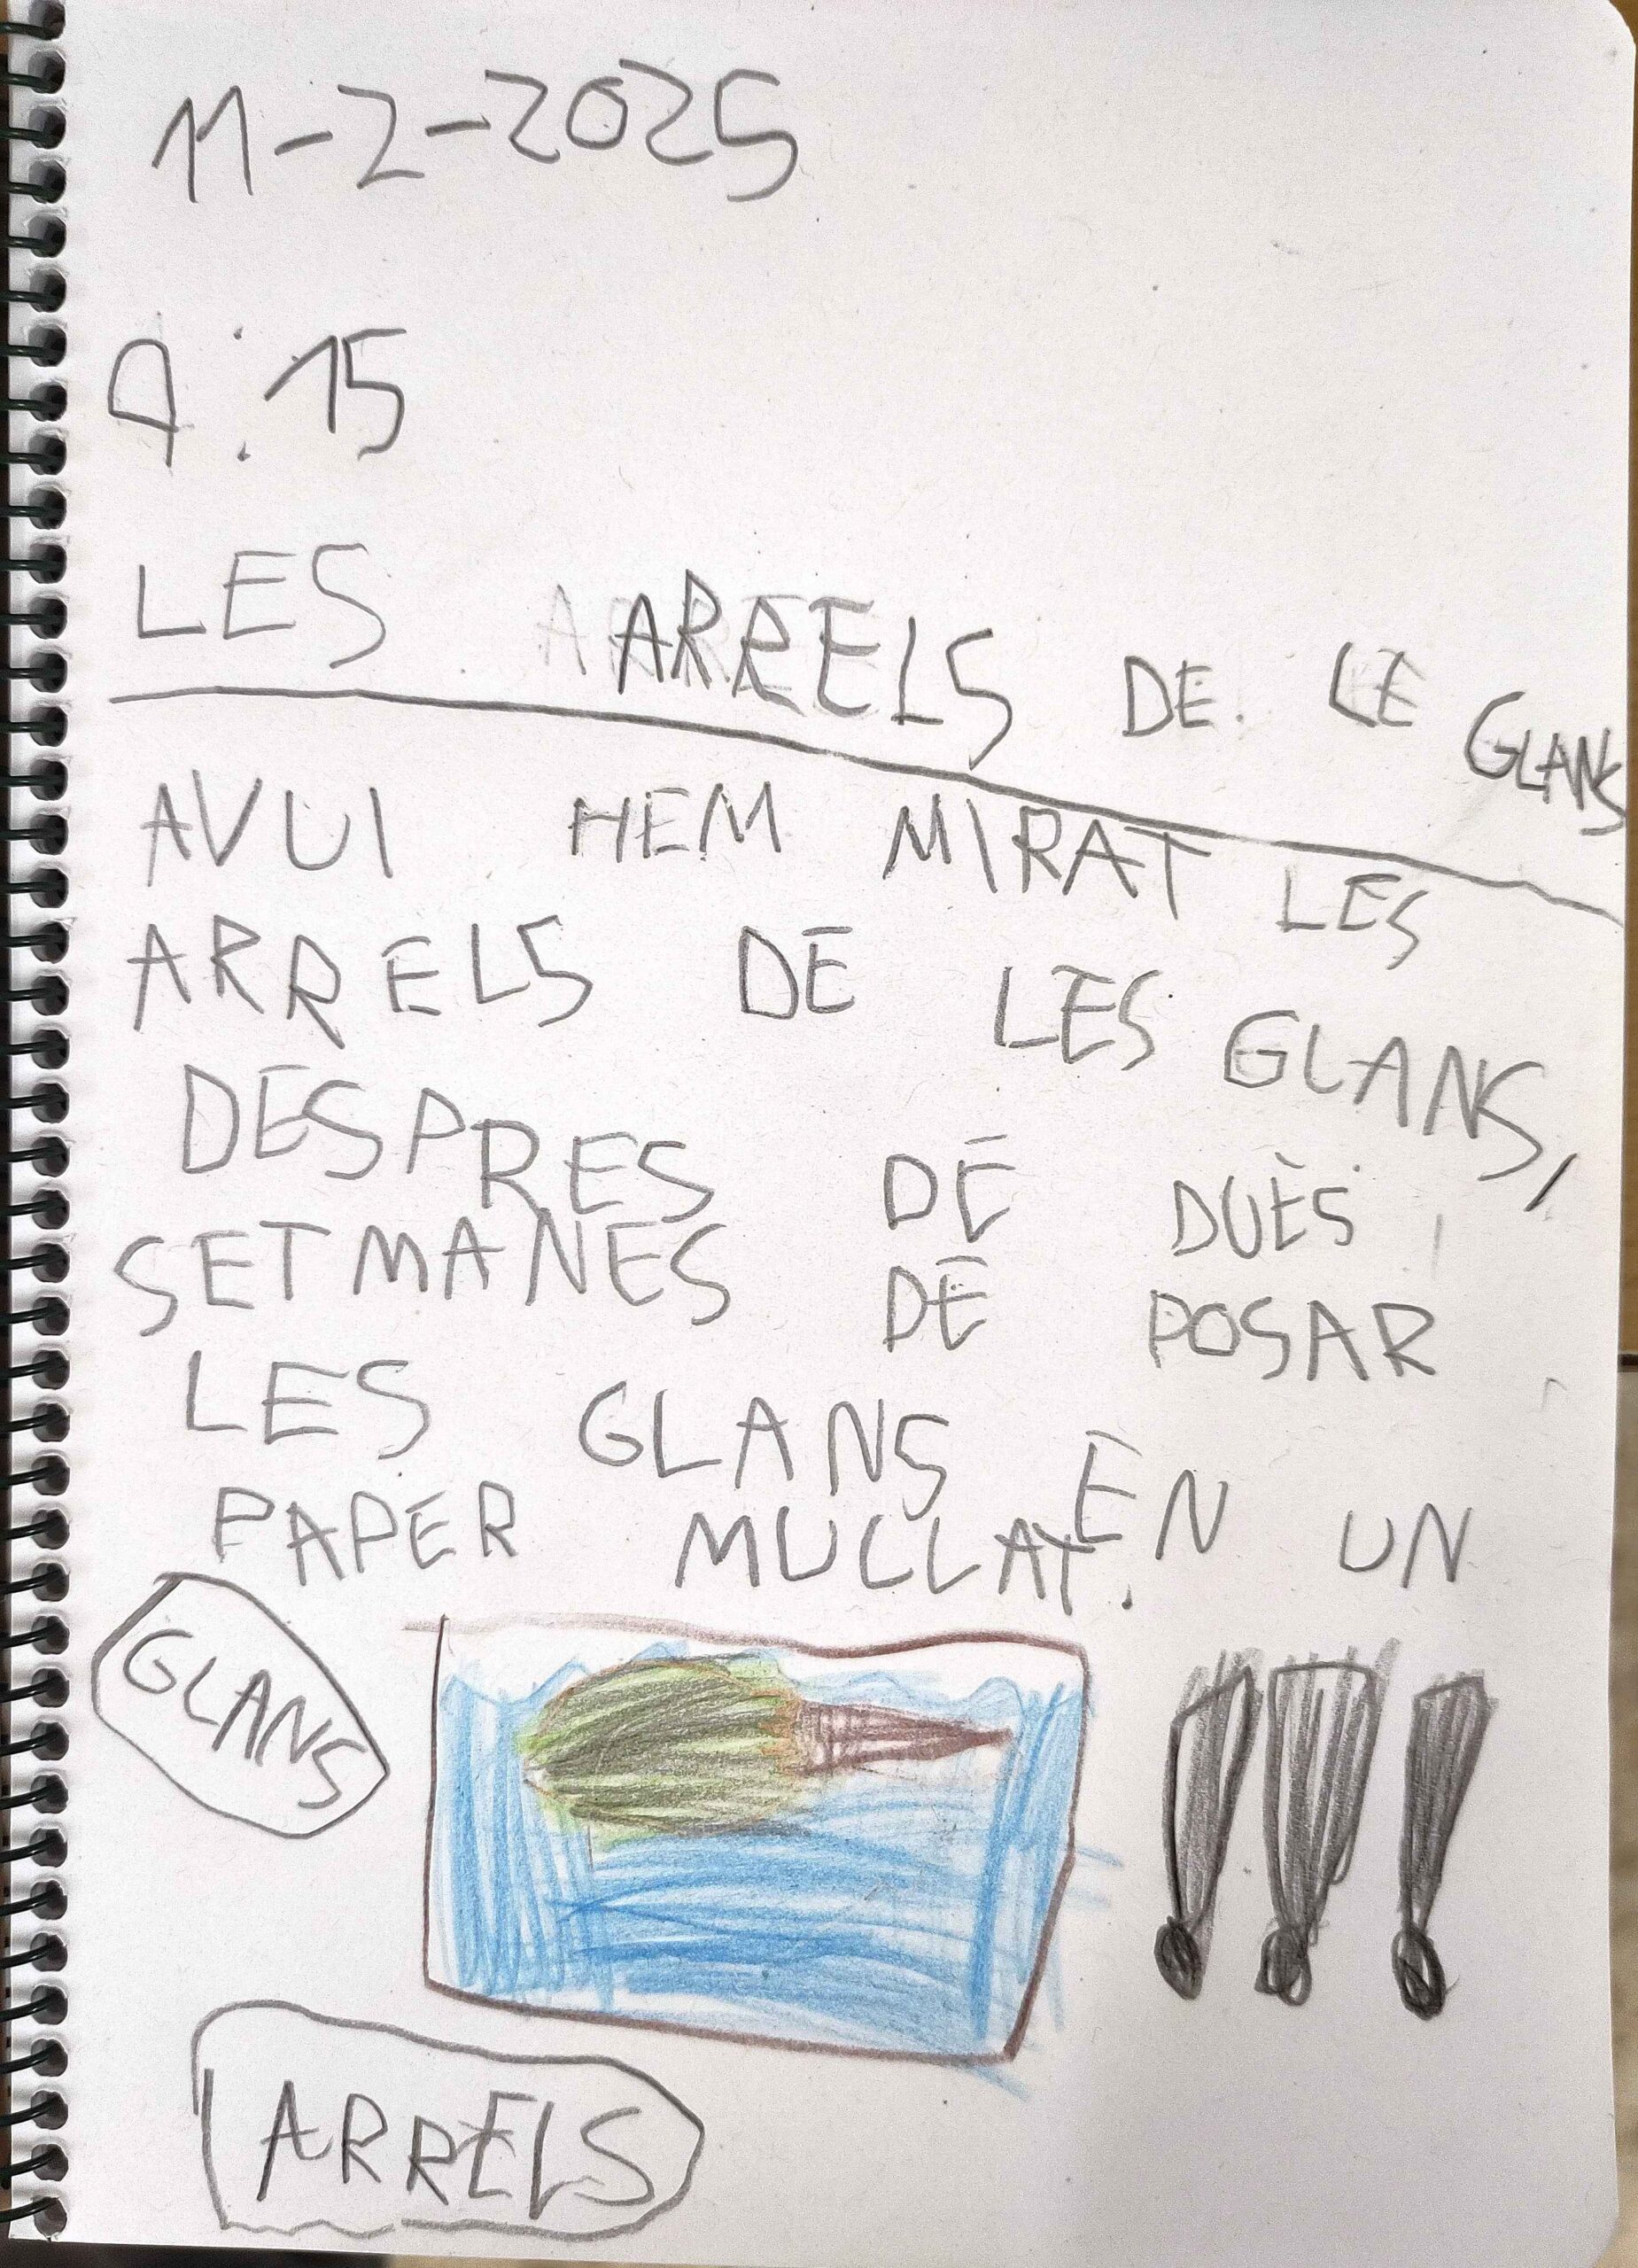 11-2-2025
9:15
LES ARRELS DE LE GLANS
AVUI HEM MIRAT LES
ARRELS DE LES GLANS,
DESPRES DE DUÈS
SETMANES DE POSAR
LES GLANS EN UN
PAPER MULLAT.
GLANS
!!!
ARRELS